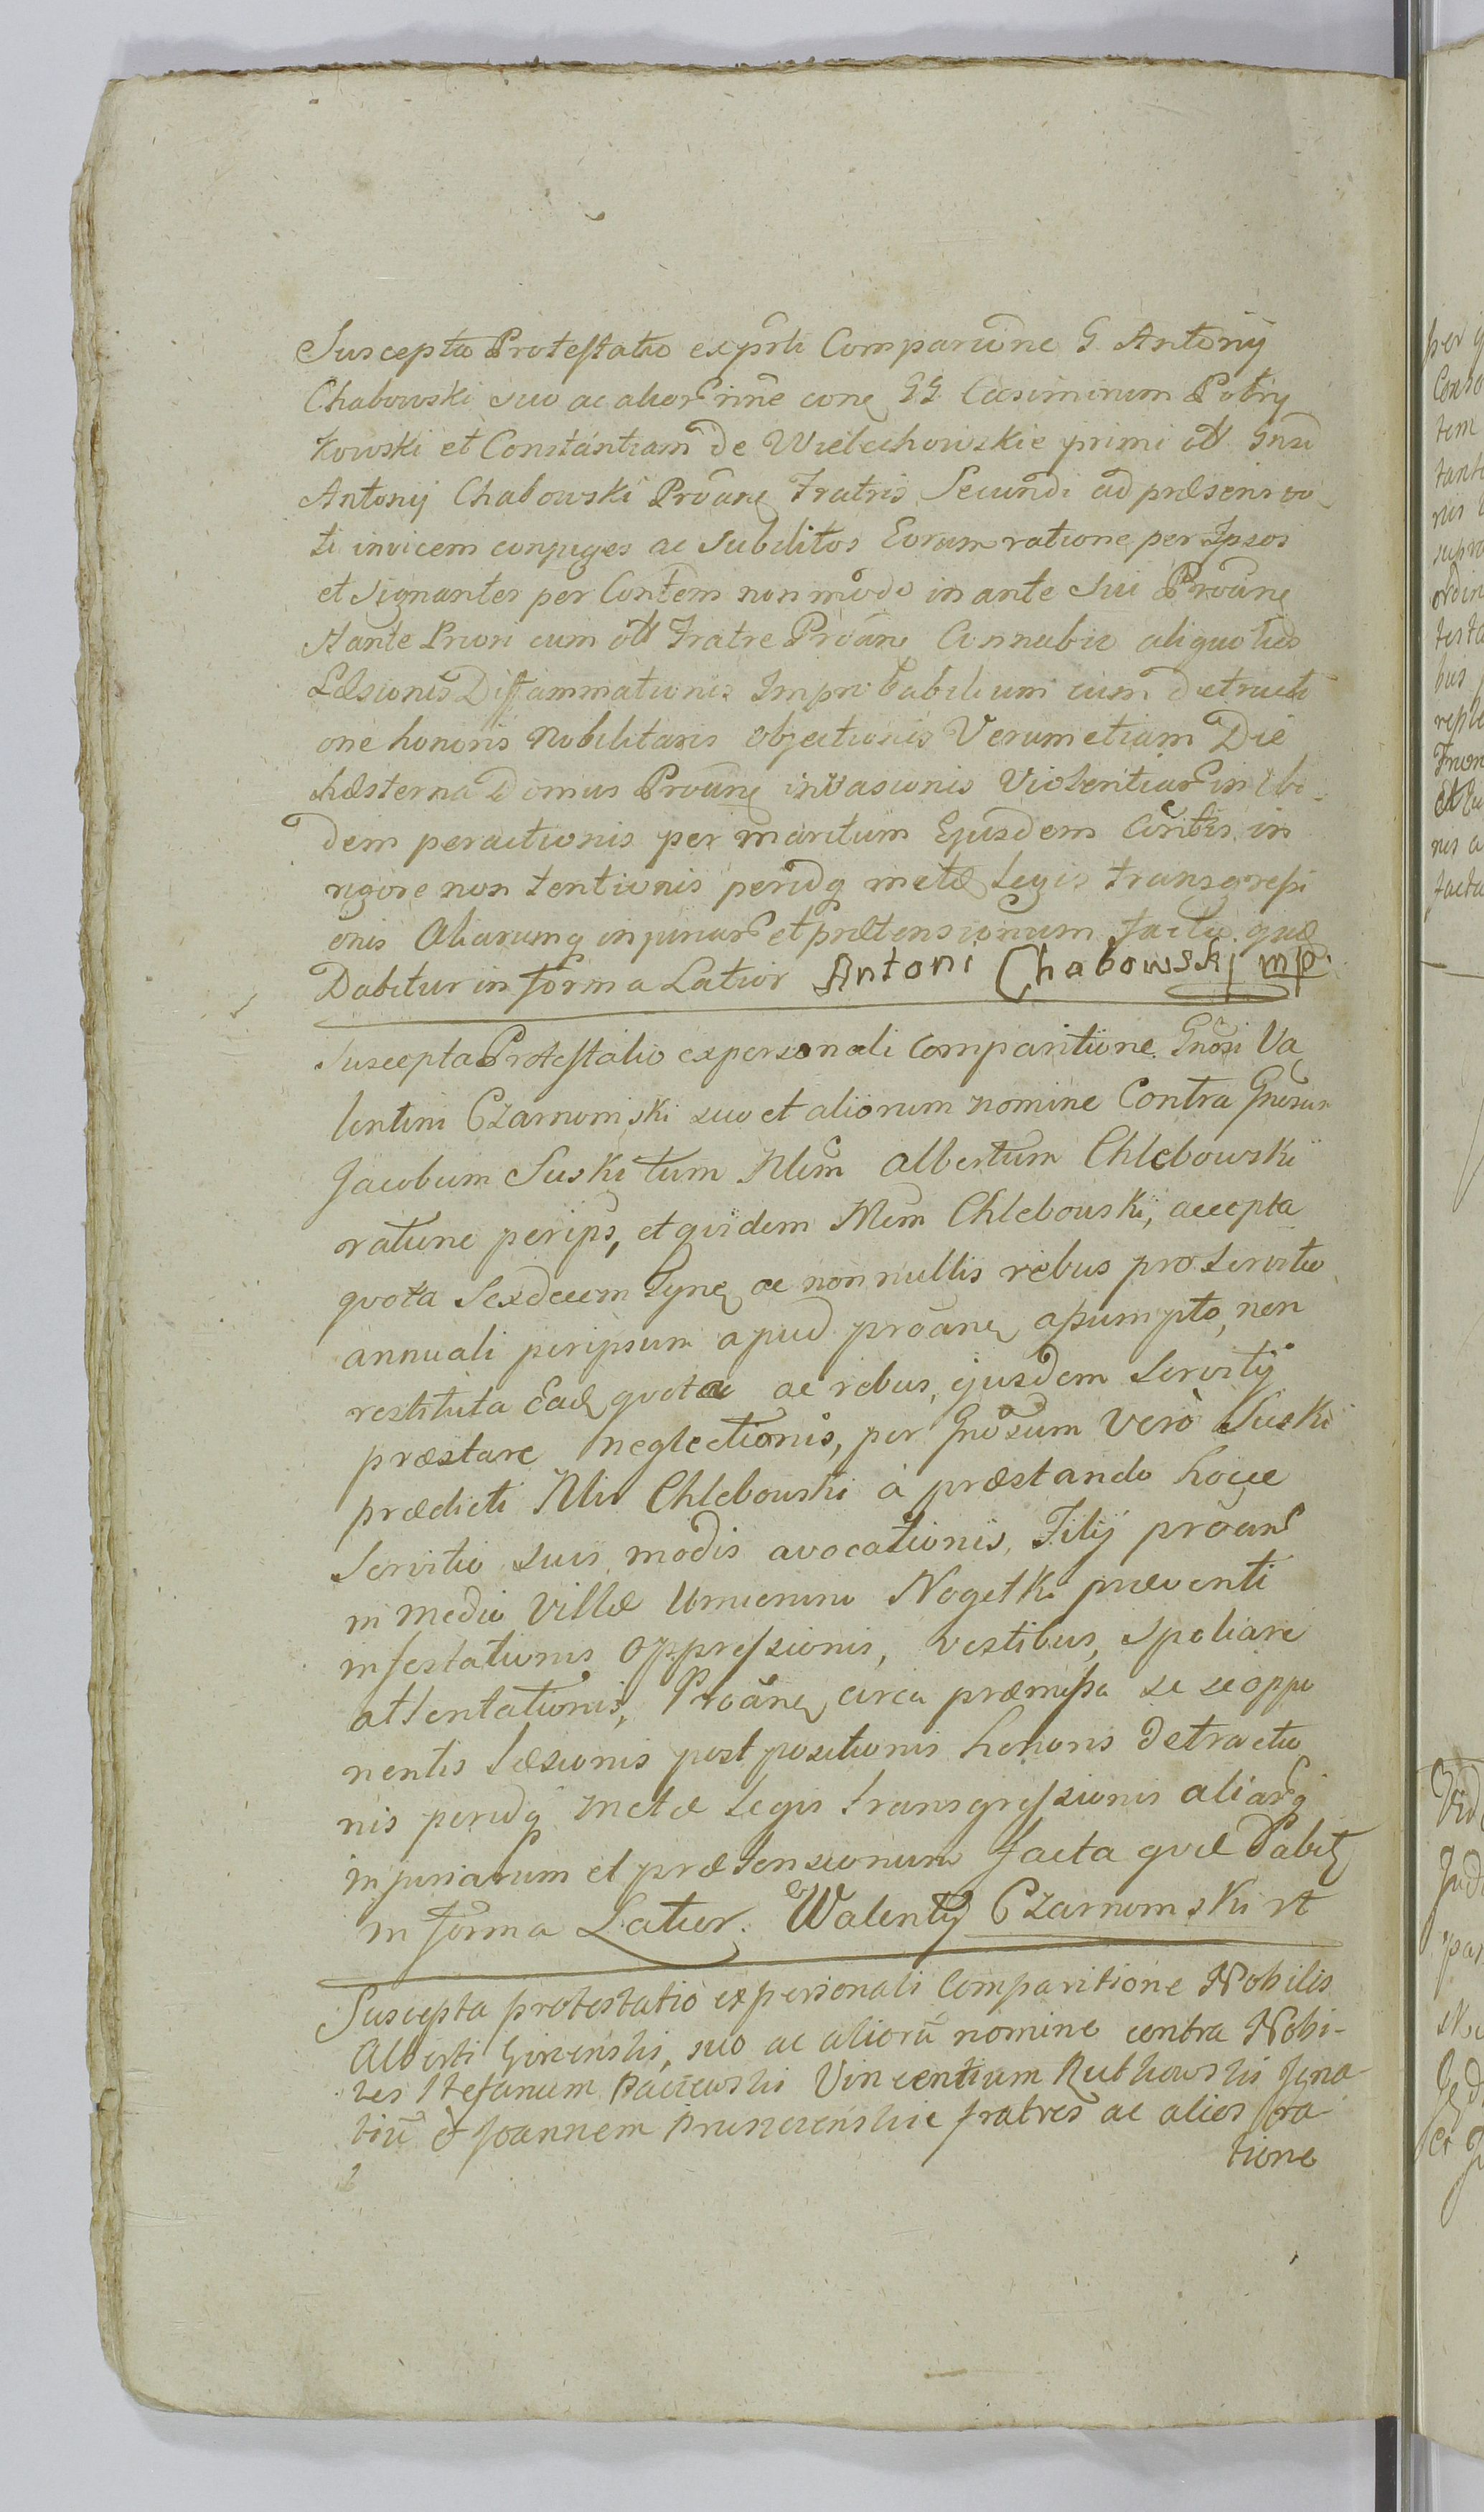 Suscepta Protestatio ex prli Comparione G Antonij
Chabowski suo ac alior nne cone GG Casimirum Potry
kowski et Constantiam de Wielichowskie primi ol Gnsi
Antonij Chabowski Proane Fratris Secundi ad præsens vo
ti invicem conjuges ac Subditos Eorum ratione per Ipsos
et signanter per Contem non modo in ante Sui Proane
Stante Priori cum ol Fratre Proane Connubio aliquoties
Læsionis Diffammationis Improbabilium cum detracti
one honoris Nobilitaris objectionis Verum etiam Die
hæsterna Domus Proane invasionis Violentiar in ibi
dem peractionis per maritum Ejusdem Contis in
rigore non tentionis peridq metæ Legis transgressi
onis Aliarumq injuriar et prætensionum facta quæ
Dabitur in forma Latior Antoni Chabowski mp
Suscepta Protestatio ex personali Comparitione Gnosi Va
lentini Czarnomski suo et aliorum nomine Contra Gnosum
Jacobum Suski tum Nlem Albertum Chlebowski
ratione per ips, et quidem Nlem Chlebowski, accepta
quota Sexdecem Tyne ac non nullis rebus pro servitio
annuali per ipsum apud proane assumpto, non
restituta Eade quota ac rebus, ejusdem Servitij
præstare neglectionis, per Gnosum Verò Suski
prædicti Nlis Chlebowski à præstando hocce
Servitio suis modis avocationis, Filij proans
in medio Villæ Umienino Nogetki præventi
infestationis oppressionis, vestibus, spoliare
attentationis, Proane circa præmissa se se oppo
nentis Læsionis post positionis honoris Detractio
nis peridq metæ Legis transgressionis aliarq
injuriarum et prætensionum facta quæ Dabit
in forma Latior. Walenty Czarnomski rt
Suscepta protestatio ex personali Comparitione Nobilis
Alberti suo ac aliorū nomine contra Nobi-
les Stefanum Vincentium Rutkowski Igna
tiū & Joannem fratres ac alios ra
tione